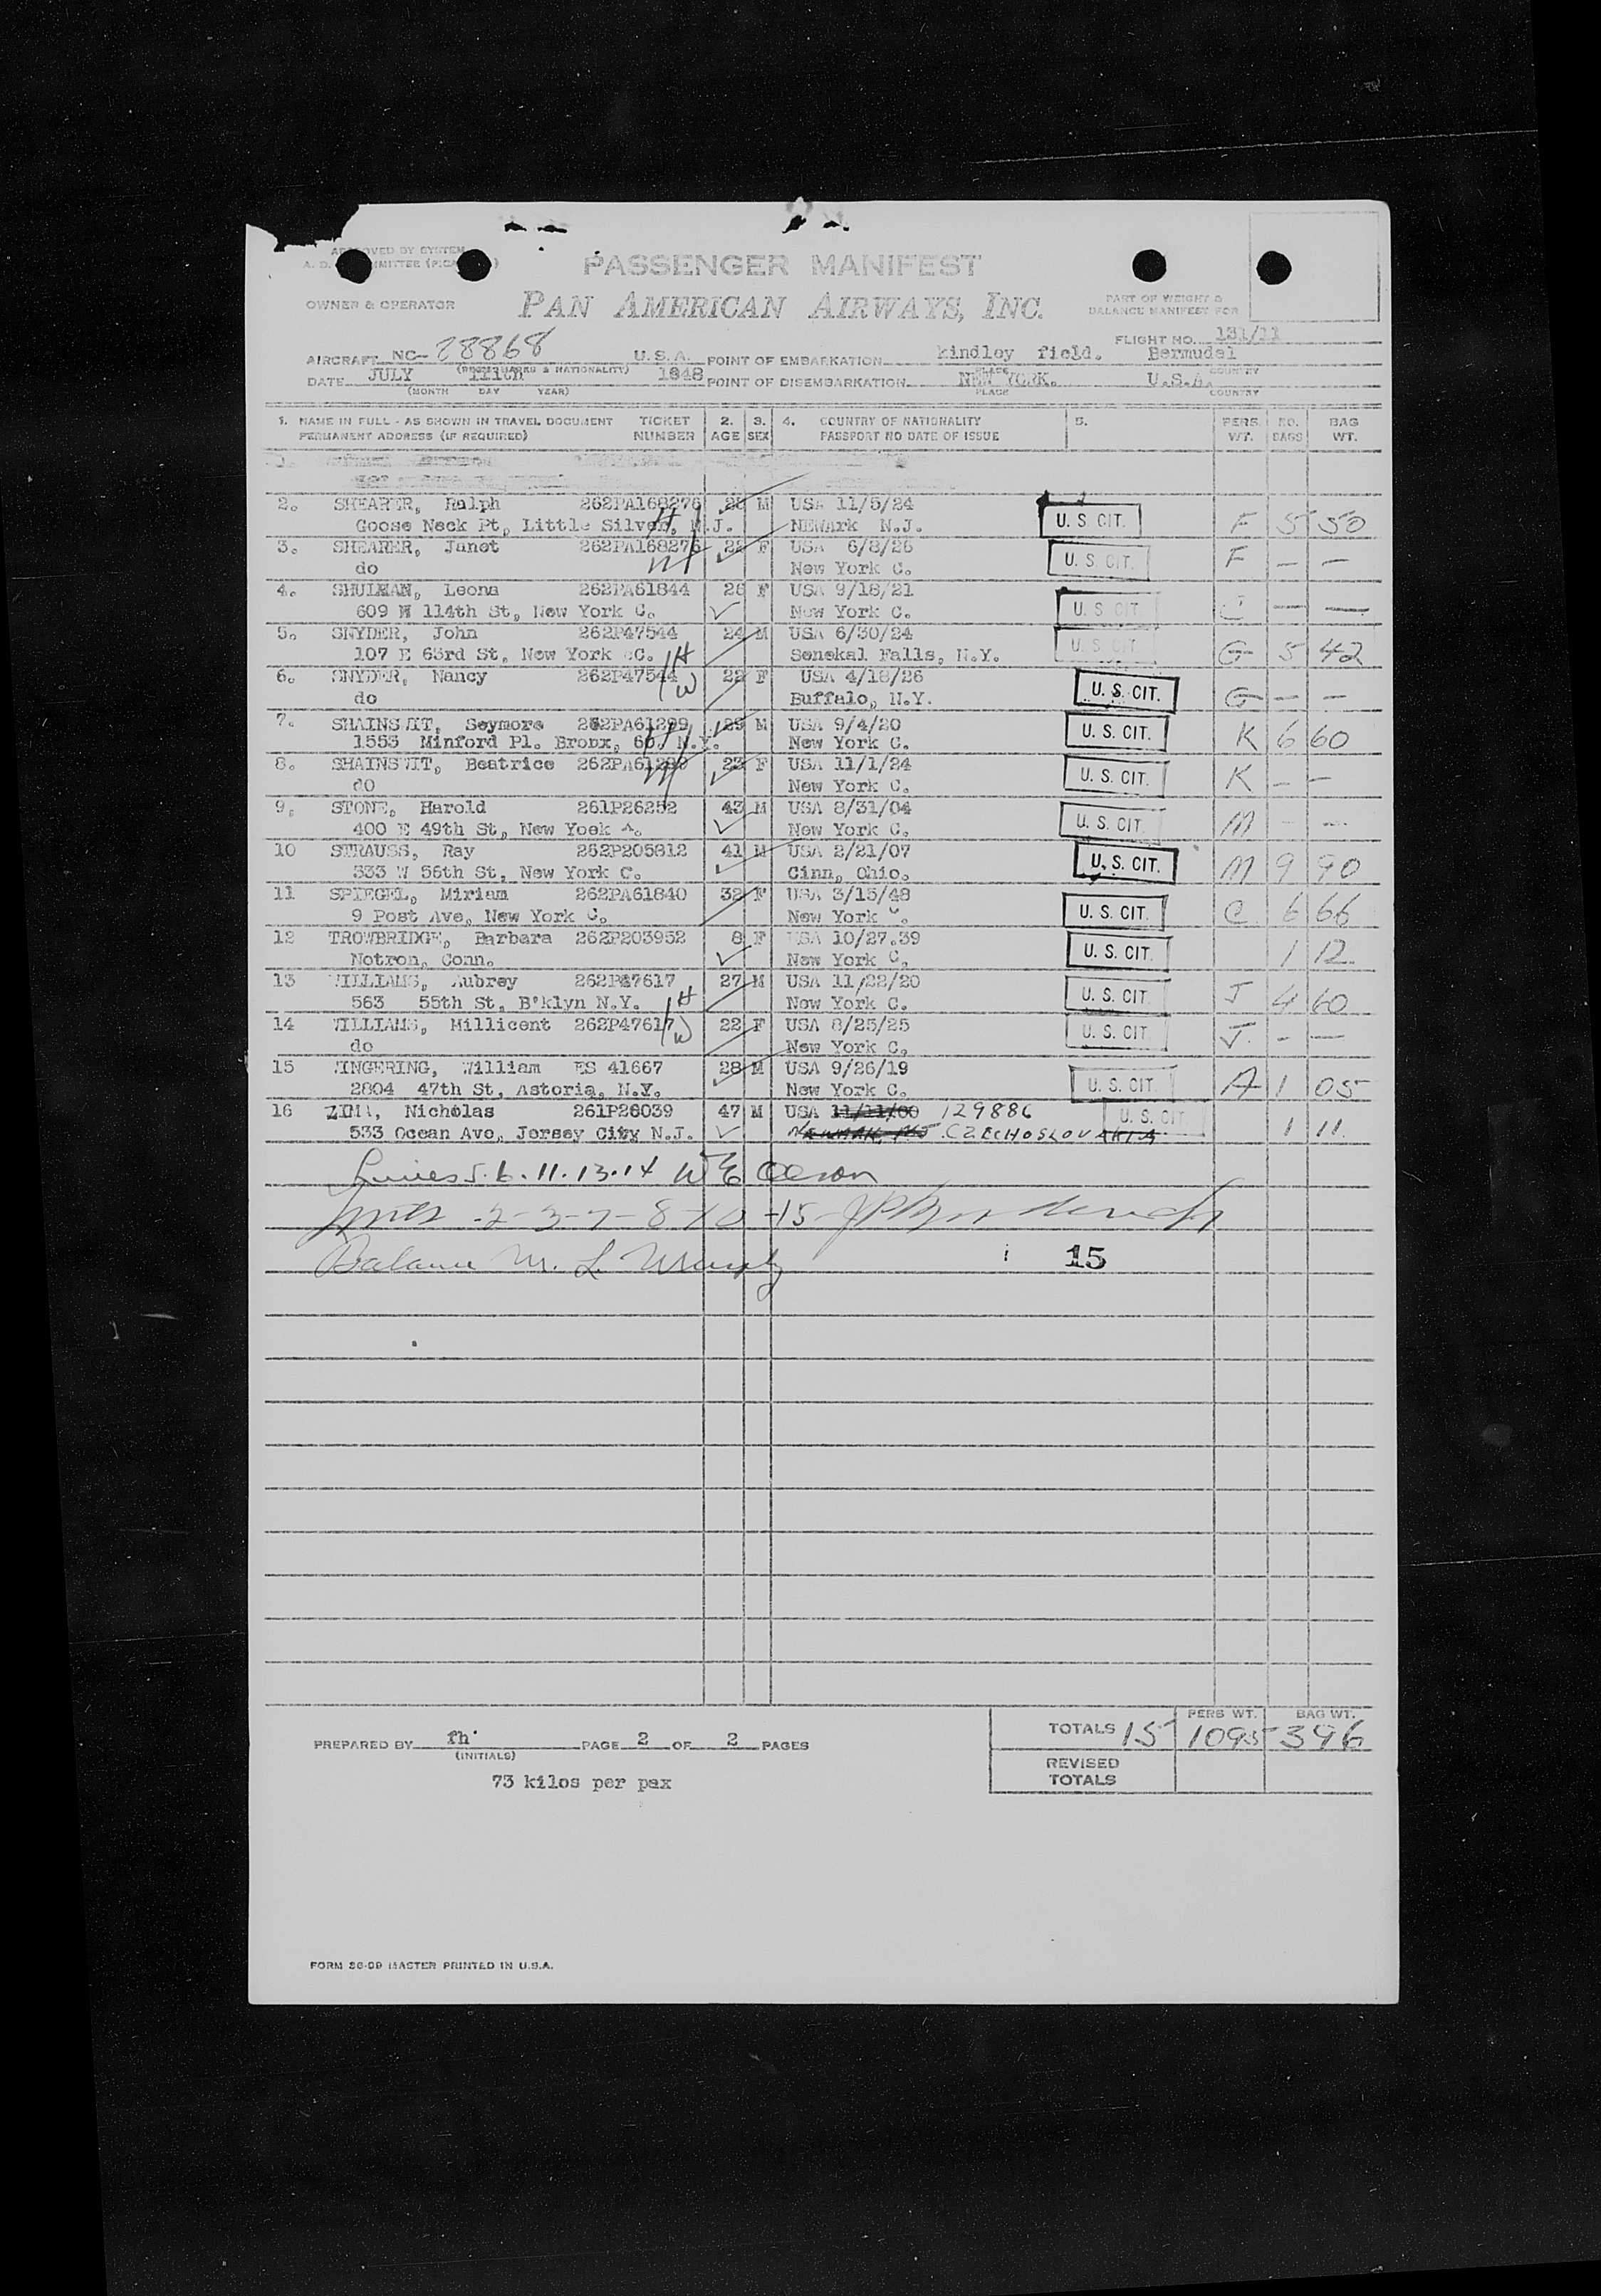 APPROVED BY SYSTEM
PASSENGER MANIFEST
OWNER & OPERATOR PAN AMERICAN AIRWAYS, INC. PART OF WEIGHT &
BALANCE MANIFEST FOR
FLIGHT NO. 131/11
AIRCRAFT NC- 28868 U.S.A. POINT OF EMBARKATION kindley field. Bermudal
(REGIS. MARKS & NATIONALITY) PLACE COUNTRY
DATE JULY 111th 1848 POINT OF DISEMBARKATION NEW YORK. U.S.A.
(MONTH DAY YEAR) PLACE COUNTRY
1. NAME IN FULL - AS SHOWN IN TRAVEL DOCUMENT TICKET 2. 3. 4. COUNTRY OF NATIONALITY 5. PERS. NO. BAG
PERMANENT ADDRESS (IF REQUIRED) NUMBER AGE SEX PASSPORT NO DATE OF ISSUE WT. BAGS WT.
1.
2. SHEARER, Ralph 262PA168276 M USA 11/5/24
Goose Neck Pt, Little Silver, N.J. NEWark N.J. U. S. CIT. F 5 50
3. SHEARER, Janet 262PA168276 22 F USA 6/8/26
do New York C. U. S. CIT. F — —
4. SHULMAN, Leona 262PA61844 26 F USA 9/18/21
609 W 114th St, New York C. New York C. U. S. CIT. — —
5. SNYDER, John 262P47544 24 M USA 6/30/24
107 E 63rd St, New York C. H Senekal Falls, N.Y. U. S. CIT. G 5 42
6. SNYDER, Nancy 262P47544 W 22 F USA 4/18/26
do Buffalo, N.Y. U. S. CIT. G — —
7. SHAINSWIT, Seymore 262PA61299 29 M USA 9/4/20
1553 Minford Pl. Bronx, 60, N.Y. New York C. U. S. CIT. K 6 60
8. SHAINSWIT, Beatrice 262PA61299 23 F USA 11/1/24
do New York C. U. S. CIT. K — —
9. STONE, Harold 261P26252 43 M USA 8/31/04
400 E 49th St, New Yoek New York C. U. S. CIT. M - --
10 STRAUSS, Ray 262P205812 41 M USA 2/21/07
333 W 56th St, New York C. Cinn, Ohio. U. S. CIT. M 9 90
11 SPIEGEL, Miriam 262PA61840 32 F USA 3/15/48
9 Post Ave, New York C. New York C. U. S. CIT. C 6 66
12 TROWBRIDGE, Barbara 262P203952 8 F USA 10/27.39
Notron, Conn. New York C, U. S. CIT. 1 12
13 WILLIAMS, Aubrey 262P47617 27 M USA 11/22/20
563 55th St, B'klyn N.Y. H New York C. U. S. CIT. J 4 60
14 WILLIAMS, Millicent 262P47617 W 22 F USA 8/25/25
do New York C, U. S. CIT. J. - —
15 WINGERING, William ES 41667 28 M USA 9/26/19
2804 47th St, Astoria, N.Y. New York C. U. S. CIT. A 1 05
16 ZIMA, Nicholas 261P28039 47 M USA 11/11/00 129886
533 Ocean Ave, Jersey City N.J. CZECHOSLOVAKIA U. S. CIT. 1 11
Lines 5. 6. 11. 13. 14 W E Olson
Lines -2-3-7-8-10 -15-
Balance M. L. Murphy 15
TOTALS 15 PERS WT. 1095 BAG WT. 396
PREPARED BY fh PAGE 2 OF 2 PAGES
(INITIALS)
REVISED
TOTALS
73 kilos per pax
FORM 36-09 MASTER PRINTED IN U.S.A.